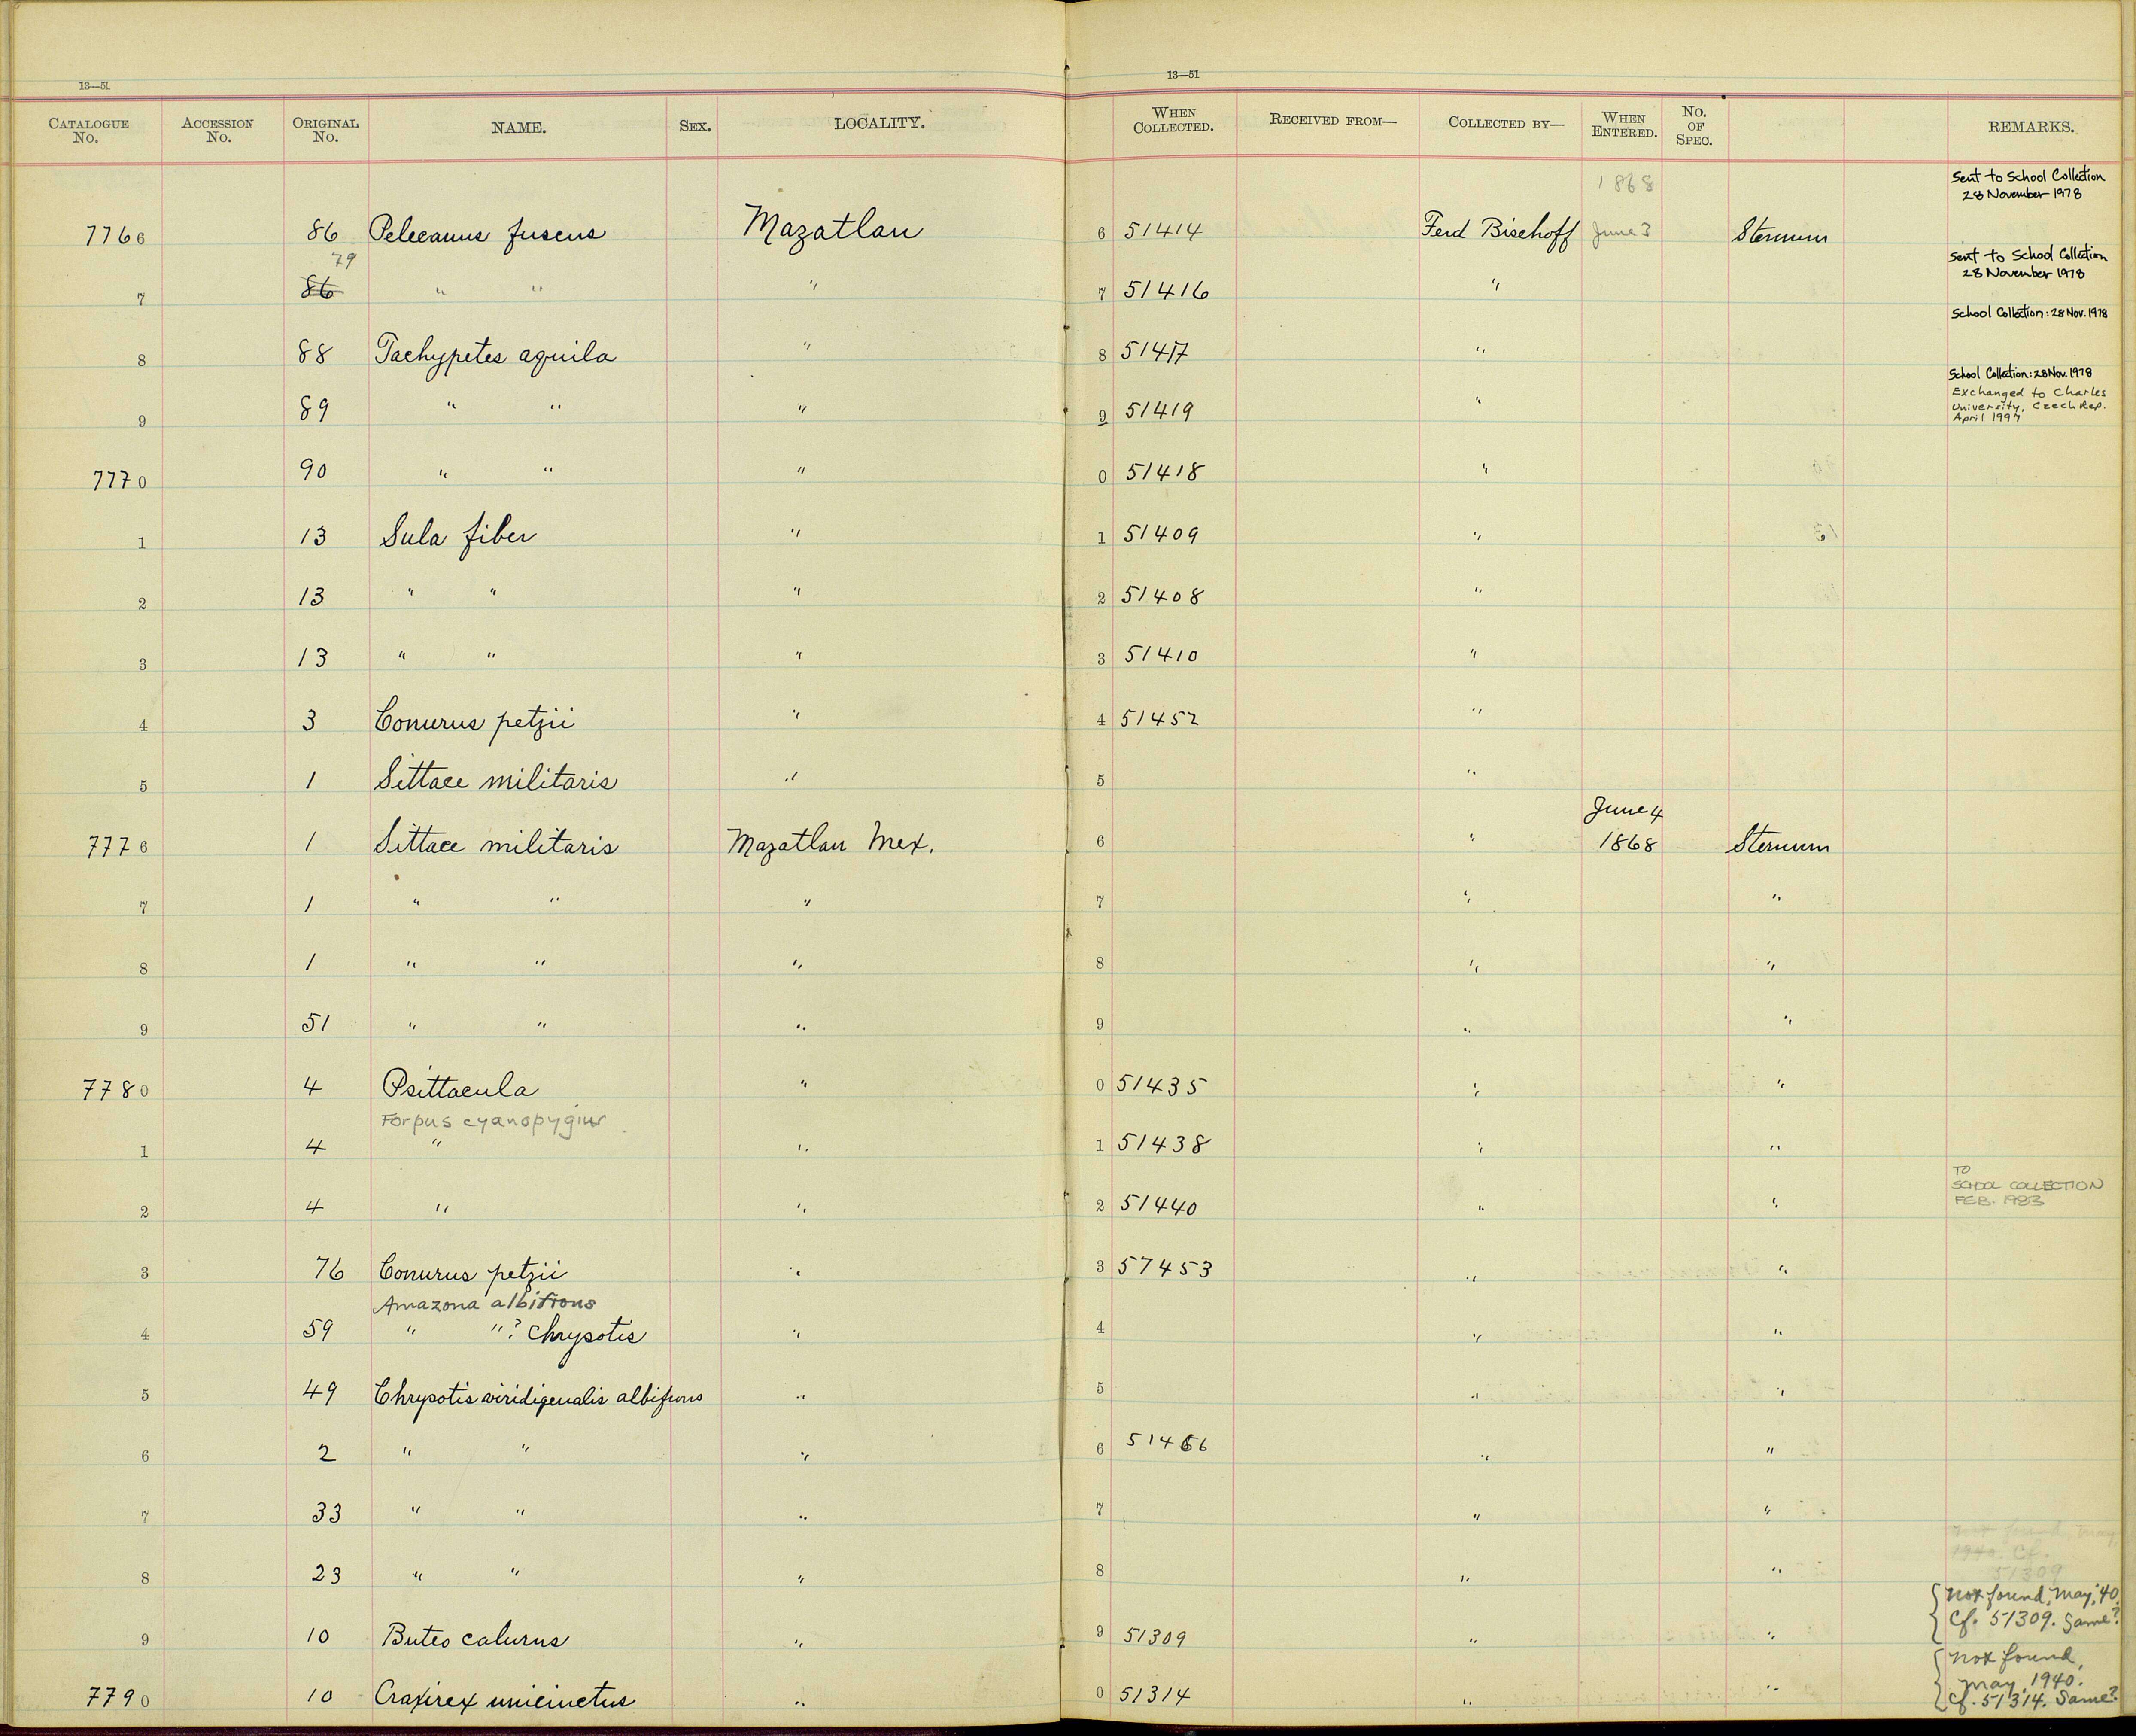 13—51
13—51
CATALOGUE No. ACCESSION No. ORIGINAL No. NAME. SEX. LOCALITY. WHEN COLLECTED. RECEIVED FROM— COLLECTED BY— WHEN ENTERED. NO. OF SPEC. REMARKS.
1868 Sent to School Collection
28 November 1978
7766 86 Pelecanus fuscus Mazatlan 6 51414 Ferd Bischoff June 3 Sternum
79 Sent to School Collection
28 November 1978
7 86 " " " 7 51416 "
School Collection: 28 Nov. 1978
8 88 Tachypetes aquila " 8 51417 "
School Collection: 28 Nov. 1978
9 89 " " " 9 51419 " Exchanged to Charles
University, Czech Rep.
April 1997
7770 90 " " " 0 51418 "
1 13 Sula fiber " 1 51409 "
2 13 " " " 2 51408 "
3 13 " " " 3 51410 "
4 3 Conurus petzii " 4 51452 "
5 1 Sittace militaris " 5 "
June 4
7776 1 Sittace militaris Mazatlan Mex. 6 " 1868 Sternum
7 1 " " " 7 " "
8 1 " " " 8 " "
9 51 " " " 9 " "
7780 4 Psittacula " 0 51435 " "
Forpus cyanopygius
1 4 " " 1 51438 " "
TO
SCHOOL COLLECTION
2 4 " " 2 51440 " " FEB. 1983
3 76 Conurus petzii " 3 57453 " "
Amazona albifrons
4 59 " "? Chrysotis " 4 " "
5 49 Chrysotis viridigenalis albifrons " 5 " "
6 2 " " " 6 51466 " "
7 33 " " " 7 " "
not found, May,
1940. Cf.
51309
8 23 " " " 8 " "
not found, May, '40
9 10 Buteo calurus " 9 51309 " " Cf. 51309. Same?
not found,
May, 1940.
7790 10 Craxirex unicinctus " 0 51314 " " Cf. 51314. Same?